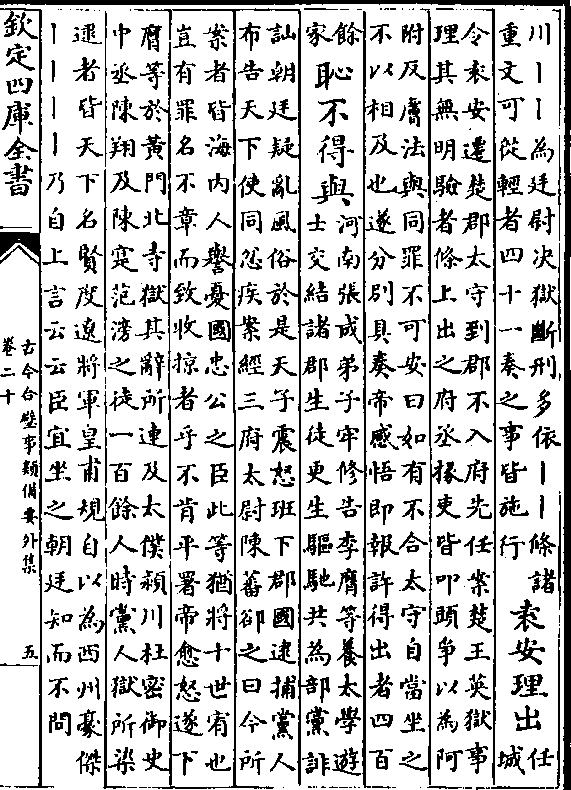 川丨丨為廷尉决獄斷刑多依丨丨條諸
重文可從輕者四十一奏之事皆施行
袁安理出
任
城
令袁安遷楚郡太守到郡不入府先任案楚王英獄事
理其無明驗者條上出之府丞掾吏皆叩頭爭以為阿
附反虜法與同罪不可安曰如有不合太守自當坐之
不以相及也遂分别具奏帝感悟即報許得出者四百
餘
家
恥不得與
河南張成弟子牢修告李膺等養太學遊
士交結諸郡生徒更生驅馳共為部黨誹
訕朝廷疑亂風俗於是天子震怒班下郡國逮捕黨人
布告天下使同忿疾案經三府太尉陳蕃卻之曰今所
案者皆海内人譽憂國忠公之臣此等猶將十世宥也
豈有罪名不章而致收掠者乎不肯平署帝愈怒遂下
膺等於黄門北寺獄其辭所連及太僕潁川杜密御史
中丞陳翔及陳寔范滂之徒一百餘人時黨人獄所染
逮者皆天下名賢度遼將軍皇甫規自以為西州豪傑
丨丨丨丨乃自上言云云臣宜坐之朝廷知而不問
欽定四庫全書
古今合璧事類備要外集
卷二十
五